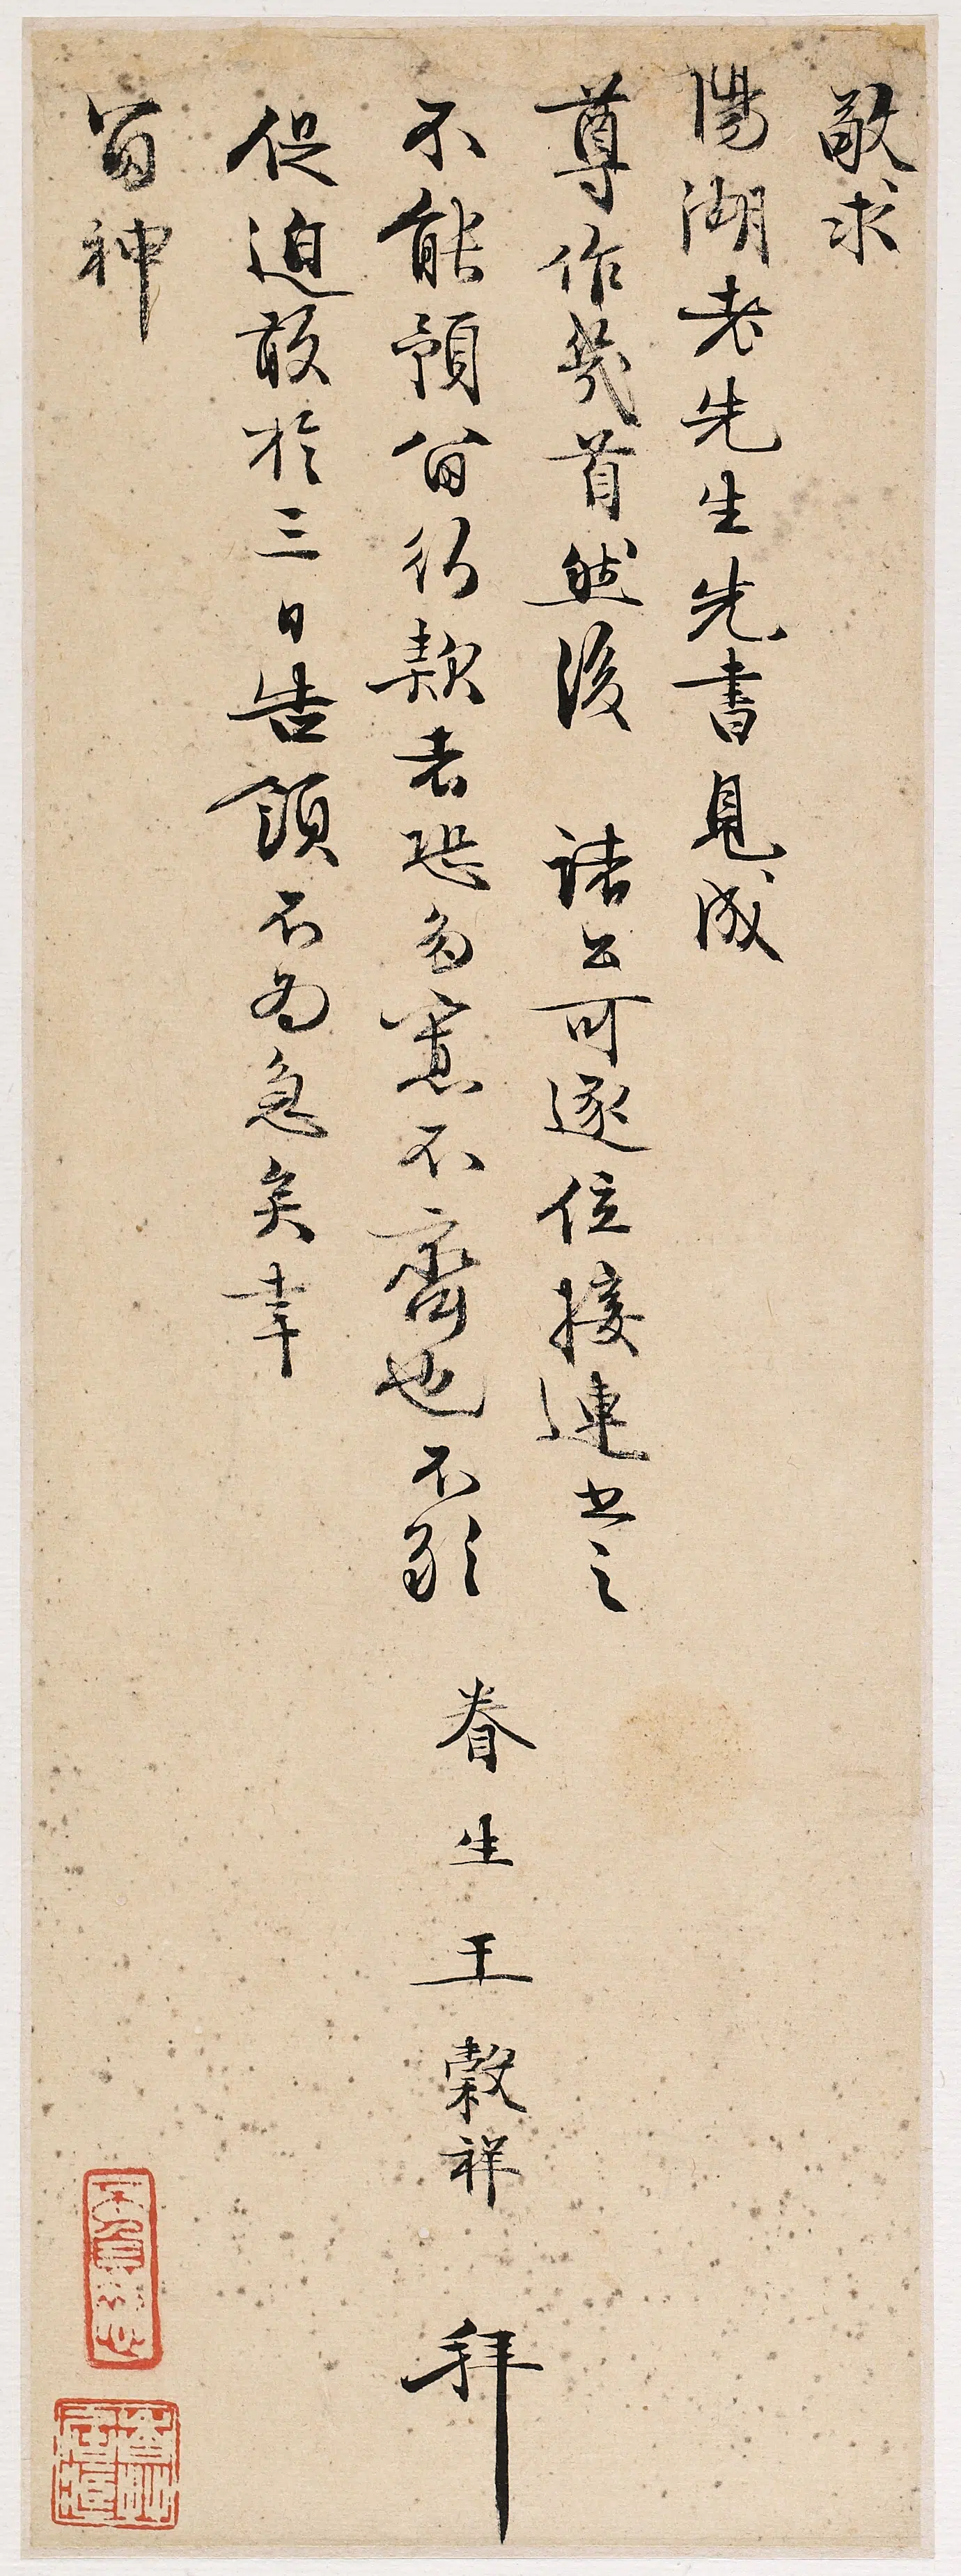 敬求
陽湖老先生先書見成
尊作幾首然後 諸公可逐位接連書之
不能預留行款者恐多寡不齊也不敢
促迫敢於三日告領不為急矣幸
留神
眷生王穀祥 拜